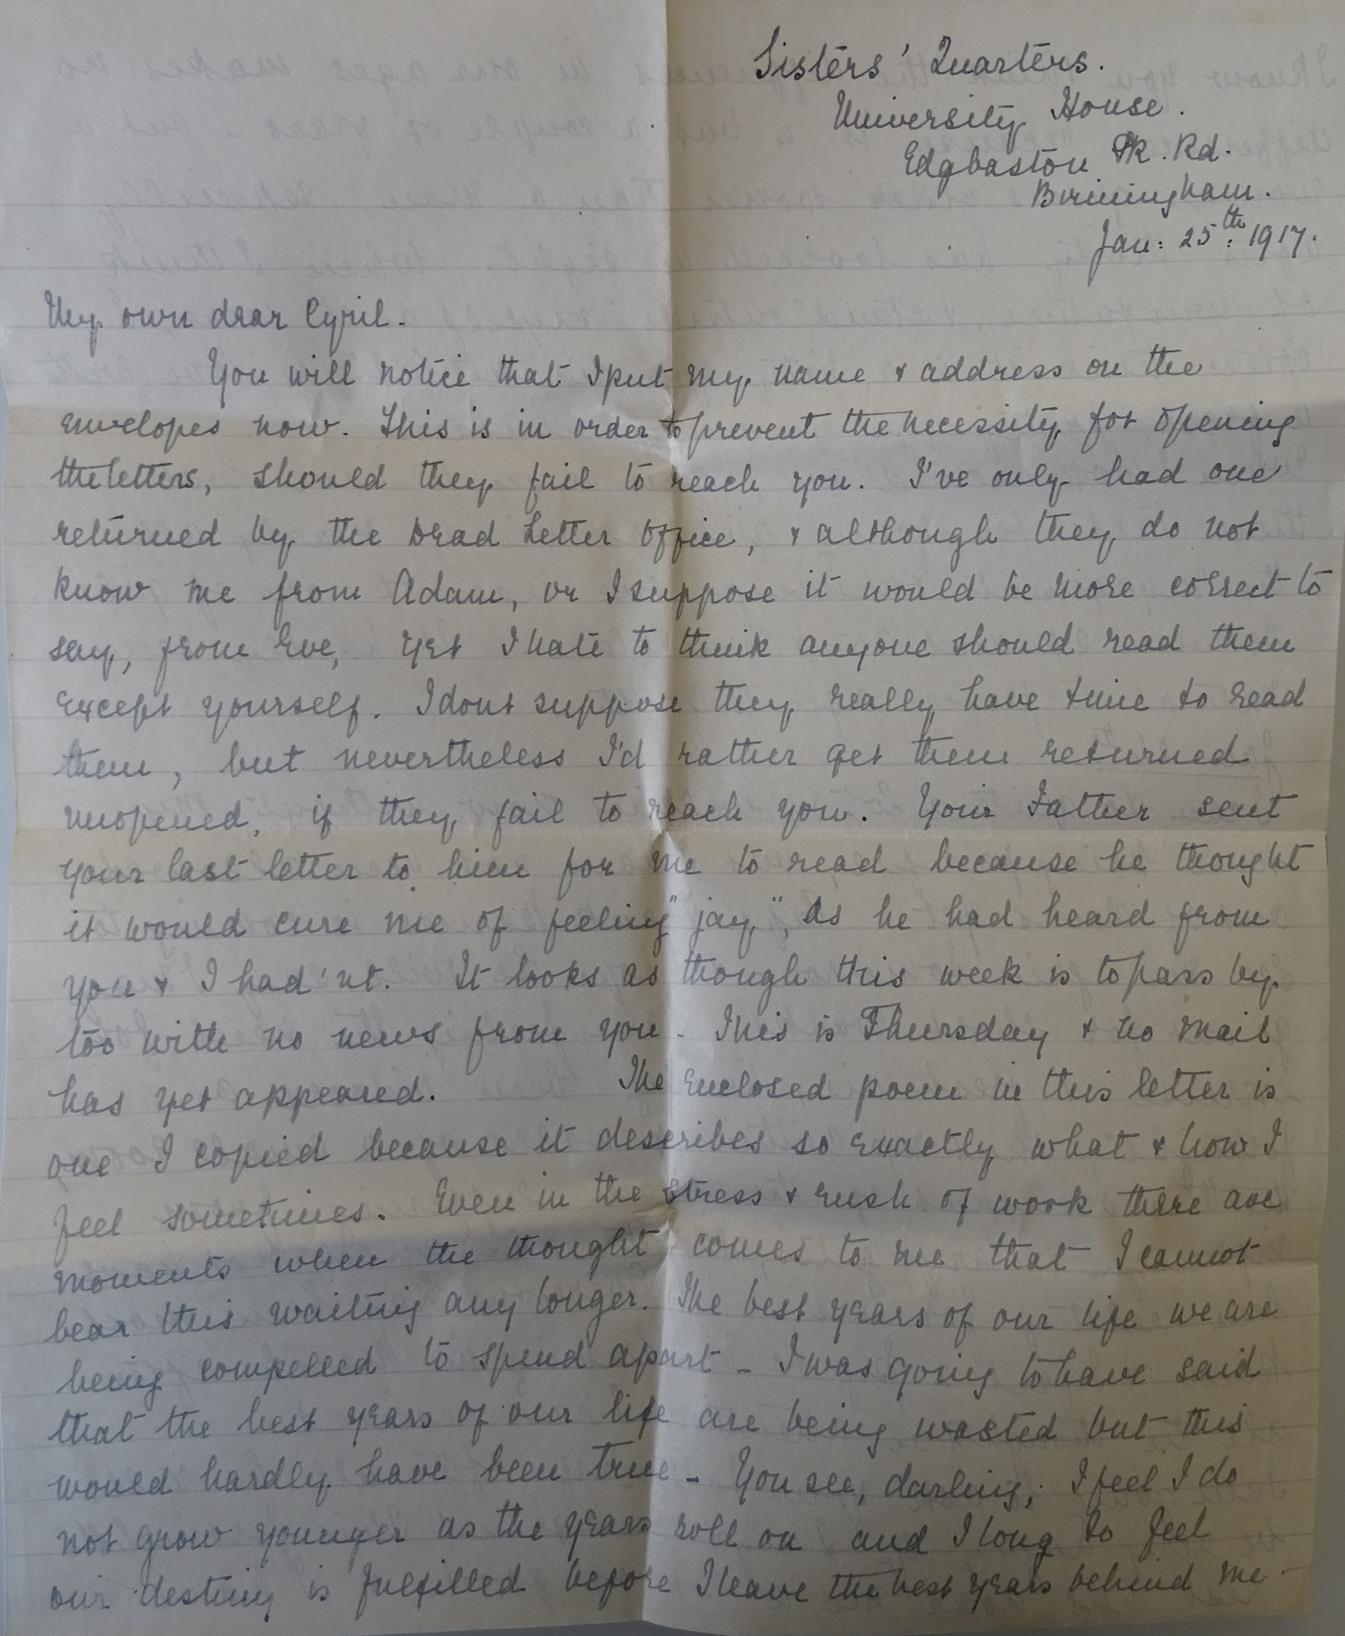 Sisters' Quarters.
University House.
Edgbaston Pk. Rd.
Birmingham.
Jan: 25th: 1917.
My own dear Cyril.
You will notice that I put my name & address on the
envelopes now. This is in order to prevent the necessity for opening
the letters, should they fail to reach you. I've only had one
returned by the Dead Letter Office, & although they do not
know me from Adam, or I suppose it would be more correct to
say, from Eve, yet I hate to think anyone should read them
except yourself. I dont suppose they really have time to read
them, but nevertheless I'd rather get them returned
unopened, if they fail to reach you. Your Father sent
your last letter to him for me to read because he thought
it would cure me of feeling "jay", as he had heard from
you & I had'nt. It looks as though this week is to pass by
too with no news from you - This is Thursday & no mail
has yet appeared. The enclosed poem in this letter is
one I copied because it describes so exactly what & how I
feel sometimes. Even in the stress & rush of work there are
moments when the thought comes to me that I cannot
bear this waiting any longer. The best years of our life we are
being compelled to spend apart - I was going to have said
that the best years of our life are being wasted but this
would hardly have been true - You see, darling, I feel I do
not grow younger as the years roll on and I long to feel
our destiny is fulfilled before I leave the best years behind me -